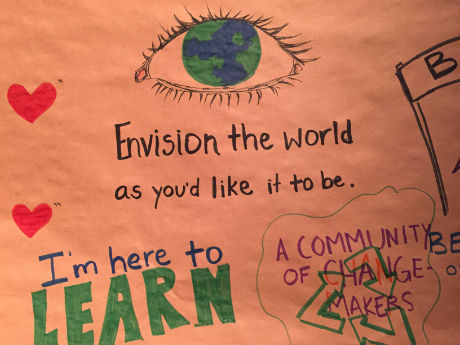 Envision the world
as you'd like it to be.
I'm here to
LEARN
A COMMUNITY
OF CHANGE-
MAKERS
B
BE